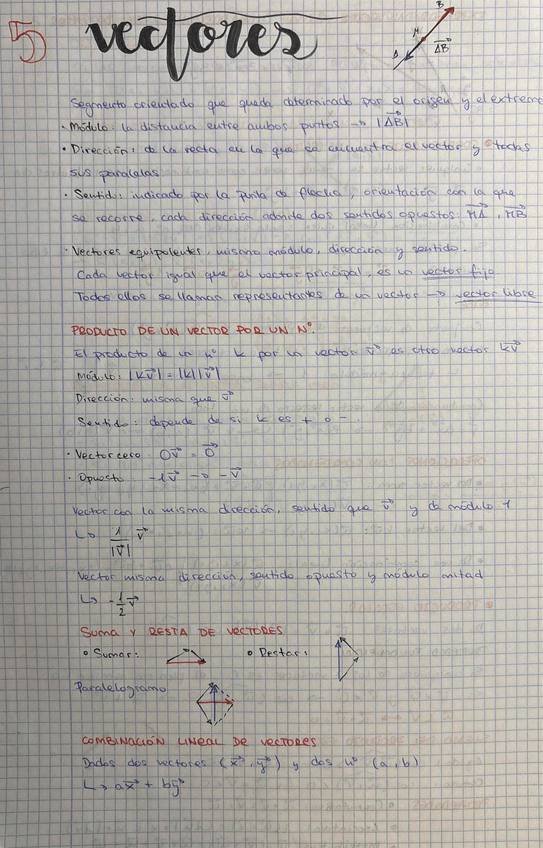 5 vectores
B
M
A
AB
Segmento orientado que queda determinado por el origen y el extremo
· Módulo: la distancia entre ambos puntos → |AB|
· Dirección: de la recta en la que se encuentra el vector y todas
sus paralelas
· Sentido: indicado por la punta de flecha, orientación con la que
se recorre, cada dirección adonde dos sentidos opuestos: MA, MB
· Vectores equipolentes, mismo módulo, dirección y sentido.
Cada vector igual que el vector principal, es un vector fijo
Todos ellos se llaman representantes de un vector → vector libre
PRODUCTO DE UN VECTOR POR UN Nº.
El producto de un nº k por un vector v⃗ es otro vector kv⃗
Módulo: |kv⃗| = |k||v⃗|
Dirección: misma que v⃗
Sentido: depende de si k es + o -.
· Vector cero 0v⃗ = 0⃗
· Opuesto -1v⃗ → -v⃗
Vector con la misma dirección, sentido que v⃗ y de módulo 1
↳ 1/|v⃗| v⃗
Vector misma dirección, sentido opuesto y módulo mitad
↳ -1/2 v⃗
SUMA Y RESTA DE VECTORES
• Sumar: • Restar:
Paralelogramo
COMBINACIÓN LINEAL DE VECTORES
Dados dos vectores (x⃗, y⃗) y dos nº (a, b)
↳ ax⃗ + by⃗